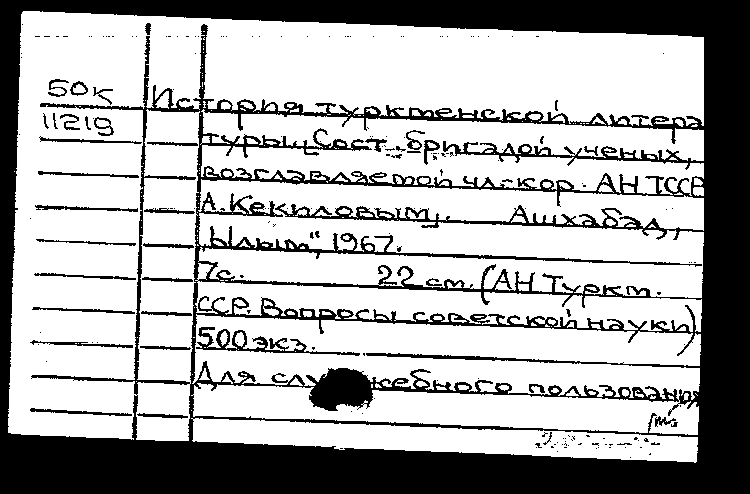 50К
11219
История туркменской литера
туры. [Сост. бригадой ученых,
возглавляемой чл.-кор. АН ТССР
А. Кекиловым]. Ашхабад,
„Ылым", 1967.
7с. 22 см. (АН Туркм.
ССР. Вопросы советской науки)
500 экз.
Для служебного пользования